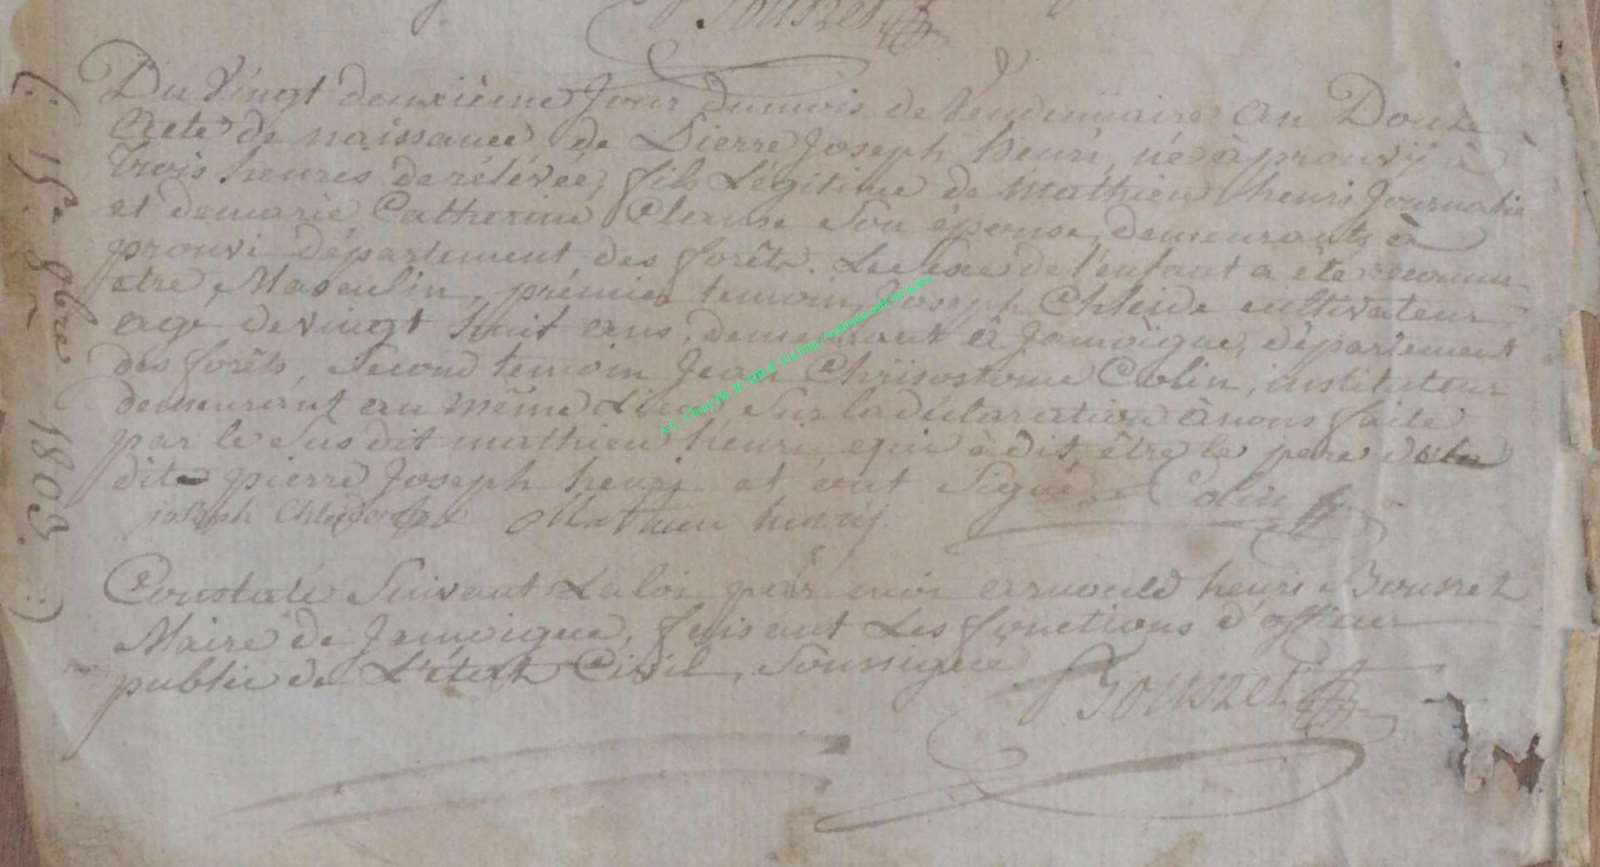 Bouszet
(: 15e 8bre 1803 :)
Du Vingt deuxième Jour dumois de Vendemiaire an Douze
Acte de naissance de Pierre Joseph henri, né à prouvÿ à
trois heures de rélévée, fils Légitime de Mathieu henri Journalie
et demarie Catherine Clause Son épouse, demeurants à
prouvi département des forêts. Le sexe de l'enfant a été reconnu
etre Masculin, prémier temoin, Joseph Chleide cultivateur
age de vingt huit ans, demeurant à Jamoigue, département
des forêts, Second temoin Jean Chrisostome Colin, instituteur
demeurant au même Lieu Sur la déclaration ànous faite
par le Susdit mathieu henri, qui à dit être le pere
dit pierre Joseph henri et ont Signé Colin
joseph Mathieu henrij
Constaté Suivant La loi par moi arnould henri Bouszet
Maire de Jamoigue, faisant Les fonctions d'officier
public de L'état Civil, Soussigné
Bouszet